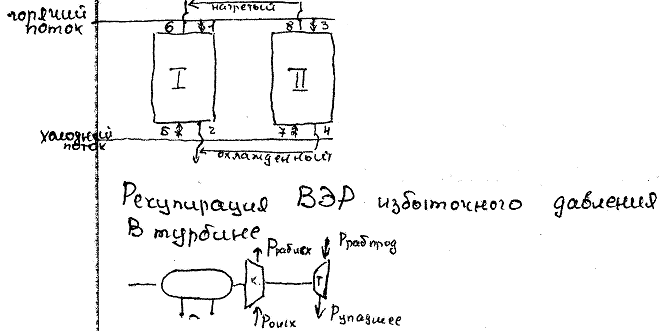 нагретый
горячий
поток
6 1 8 3
I II
холодный
поток
5 2 7 4
охлажденный
Рекупирация ВЭР избыточного давления
В турбине
Pрабвых Pрабпрод
К Т
Pупавшее